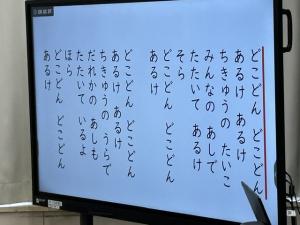 どこどん どこどん
あるけ あるけ
ちきゅうの たいこ
みんなの あしで
たたいて あるけ
そら
どこどん どこどん
あるけ
どこどん どこどん
あるけ あるけ
ちきゅうの うらで
だれかの あしも
たたいて いるよ
ほら
どこどん どこどん
あるけ